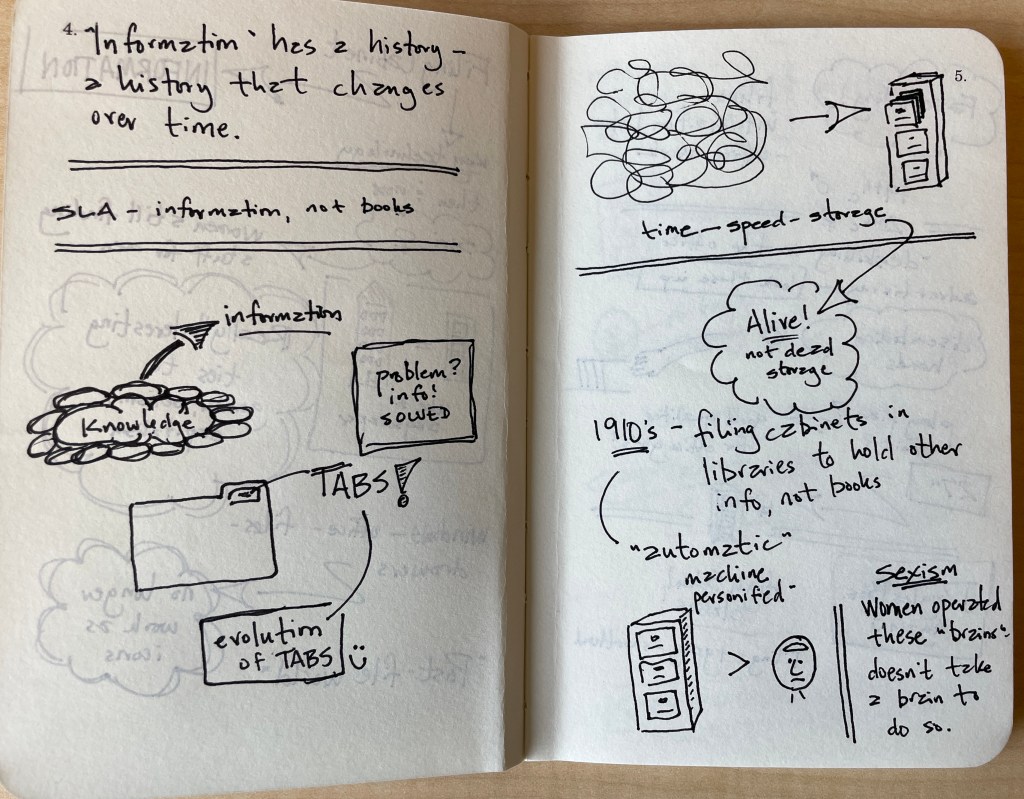 4.
"Information" has a history -
a history that changes
over time.
SLA - information, not books
information
Knowledge
problem?
info!
SOLVED
TABS!
evolution
of TABS
5.
time - speed - storage
Alive!
not dead
storage
1910's - filing cabinets in
libraries to hold other
info, not books
"automatic"
machine
personified -
>
sexism
Women operated
these "brains" -
doesn't take
a brain to
do so.